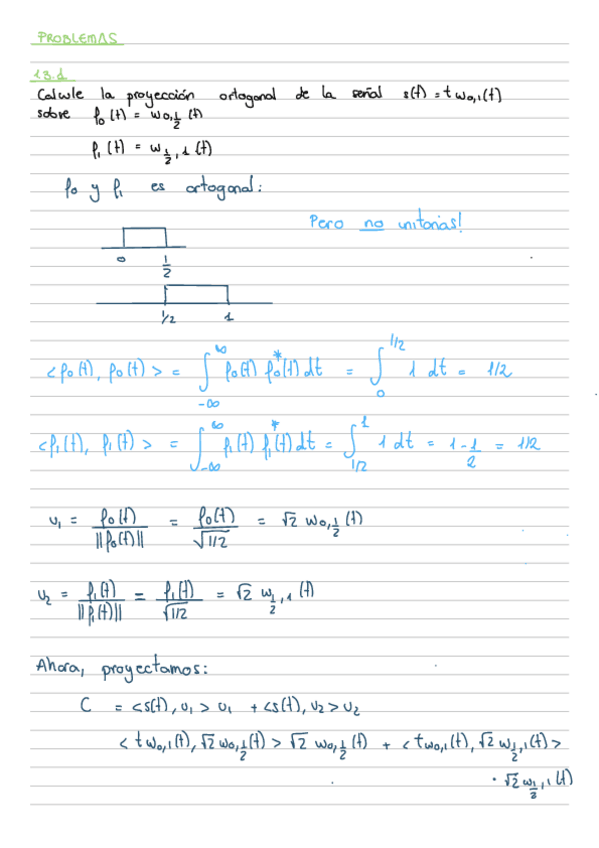 PROBLEMAS
1.3.d
Calcule la proyección ortogonal de la señal s(t) = t w₀,₁(t)
sobre ρ₀(t) = w₀,½(t)
ρ₁(t) = w½,₁(t)
ρ₀ y ρ₁ es ortogonal:
Pero no unitarias!
0 1/2
1/2 1
<ρ₀(t), ρ₀(t)> = ∫_{-∞}^{∞} ρ₀(t) ρ₀*(t) dt = ∫_0^{1/2} 1 dt = 1/2
<ρ₁(t), ρ₁(t)> = ∫_{-∞}^{∞} ρ₁(t) ρ₁*(t) dt = ∫_{1/2}^{1} 1 dt = 1 - 1/2 = 1/2
u₁ = ρ₀(t)/||ρ₀(t)|| = ρ₀(t)/√1/2 = √2 w₀,½(t)
u₂ = ρ₁(t)/||ρ₁(t)|| = ρ₁(t)/√1/2 = √2 w½,₁(t)
Ahora, proyectamos:
C = <s(t), u₁> u₁ + <s(t), u₂> u₂
<t w₀,₁(t), √2 w₀,½(t)> √2 w₀,½(t) + <t w₀,₁(t), √2 w½,₁(t)>
· √2 w½,₁(t)